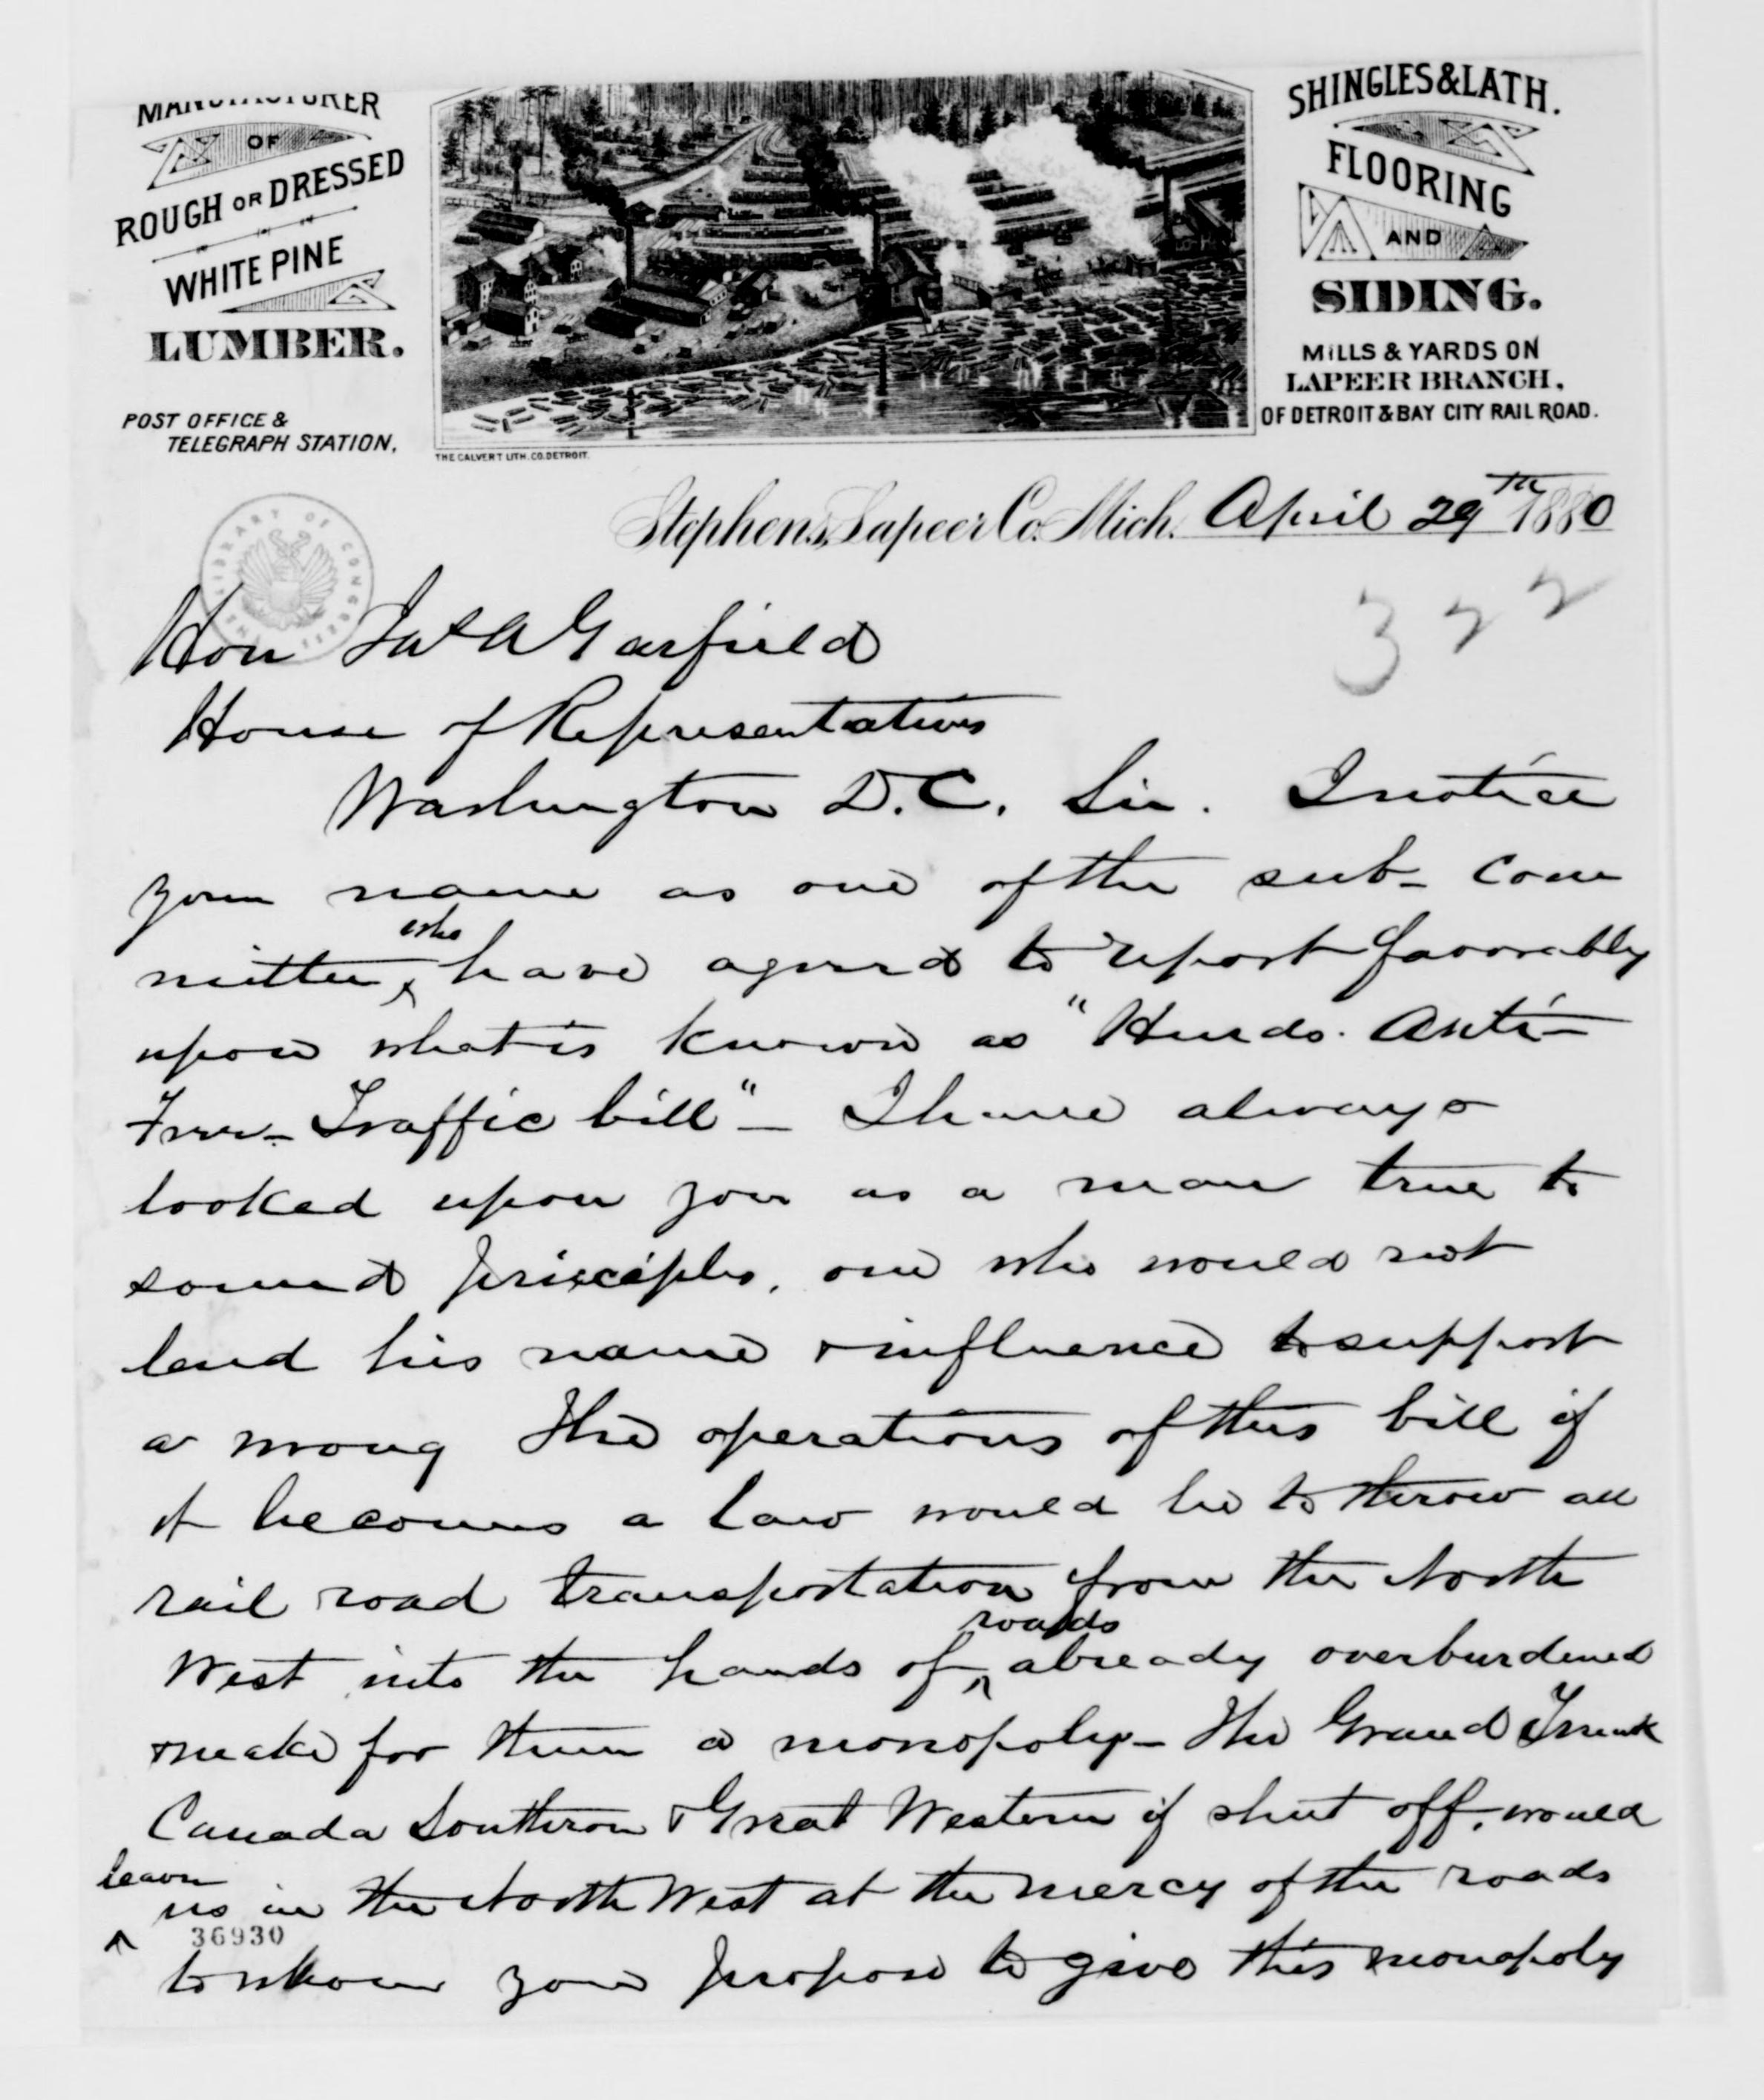 MANUFACTURER
OF
ROUGH OR DRESSED
WHITE PINE
LUMBER.
POST OFFICE &
TELEGRAPH STATION,
THE CALVERT LITH. CO. DETROIT.
SHINGLES & LATH.
FLOORING
AND
SIDING.
MILLS & YARDS ON
LAPEER BRANCH,
OF DETROIT & BAY CITY RAIL ROAD.
Stephens, Lapeer Co. Mich. April 29TH 1880
THE LIBRARY OF CONGRESS
322
Hon Jas A Garfield
House of Representatives
Washington D.C. Sir. I notice
your name as one of the sub- com
mittee who have agreed to report favorably
upon what is known as "Hurds. Anti-
Free- Traffic bill"- I have always
looked upon you as a man true to
sound principles, one who would not
lend his name & influence to support
a wrong The operations of this bill if
it becomes a law would be to throw all
rail road transportation from the North
West into the hands of roads already overburdened
& make for them a monopoly- The Grand Trunk
Canada Southron & Great Western if shut off, would
leave us in the North West at the mercy of the roads
36930
to whom you propose to give this monopoly